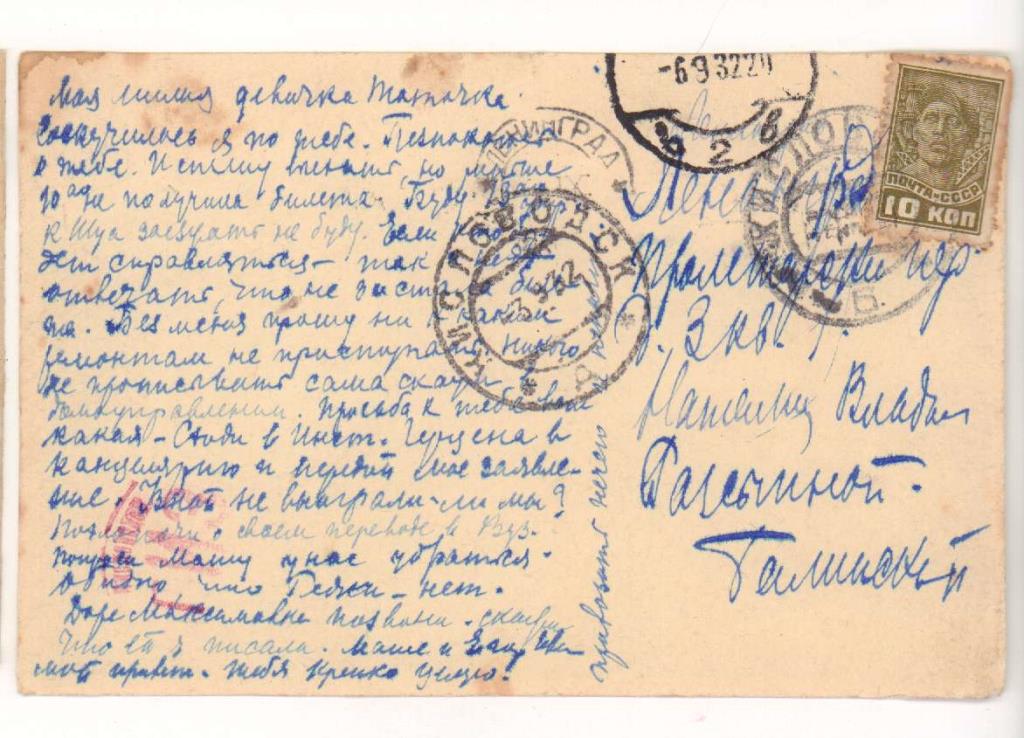 Моя милая девочка Таточка.
Соскучилась я по тебе. Безпокоюсь
о тебе. И спешу выехать, но раньше
10ого не получила билета. Буду
к Шуа заезжать не буду. Если кто
справляться – так
отвечать, что не
Без меня прошу ни к каким
ремонтам не приступать. Никого
не прописывать сама скажи
домоуправлении. Просьба к тебе вот
какая – Сходи в Инст. Герцена в
канцелярию и передай мое заявле-
ние. Узнай не выиграли-ли мы?
Похлопочи о своем переводе в Вуз.
Попроси Машу у нас убраться.
Обидно что – нет.
Доре Максимовне позвони – скажи
что ей я писала. Маше и
мой привет. Тебя крепко целую.
привозить нечего
-6 9 32 20
2 в
ЛЕНИНГРАД
КИСЛОВОДСК
3.9.32
А
КИСЛОВОДСК
Б
ПОЧТА·СССР
10 КОП
Ленинград
Пролетарский пер
д. 3 кв. 9.
Наталии Влад
Галинской